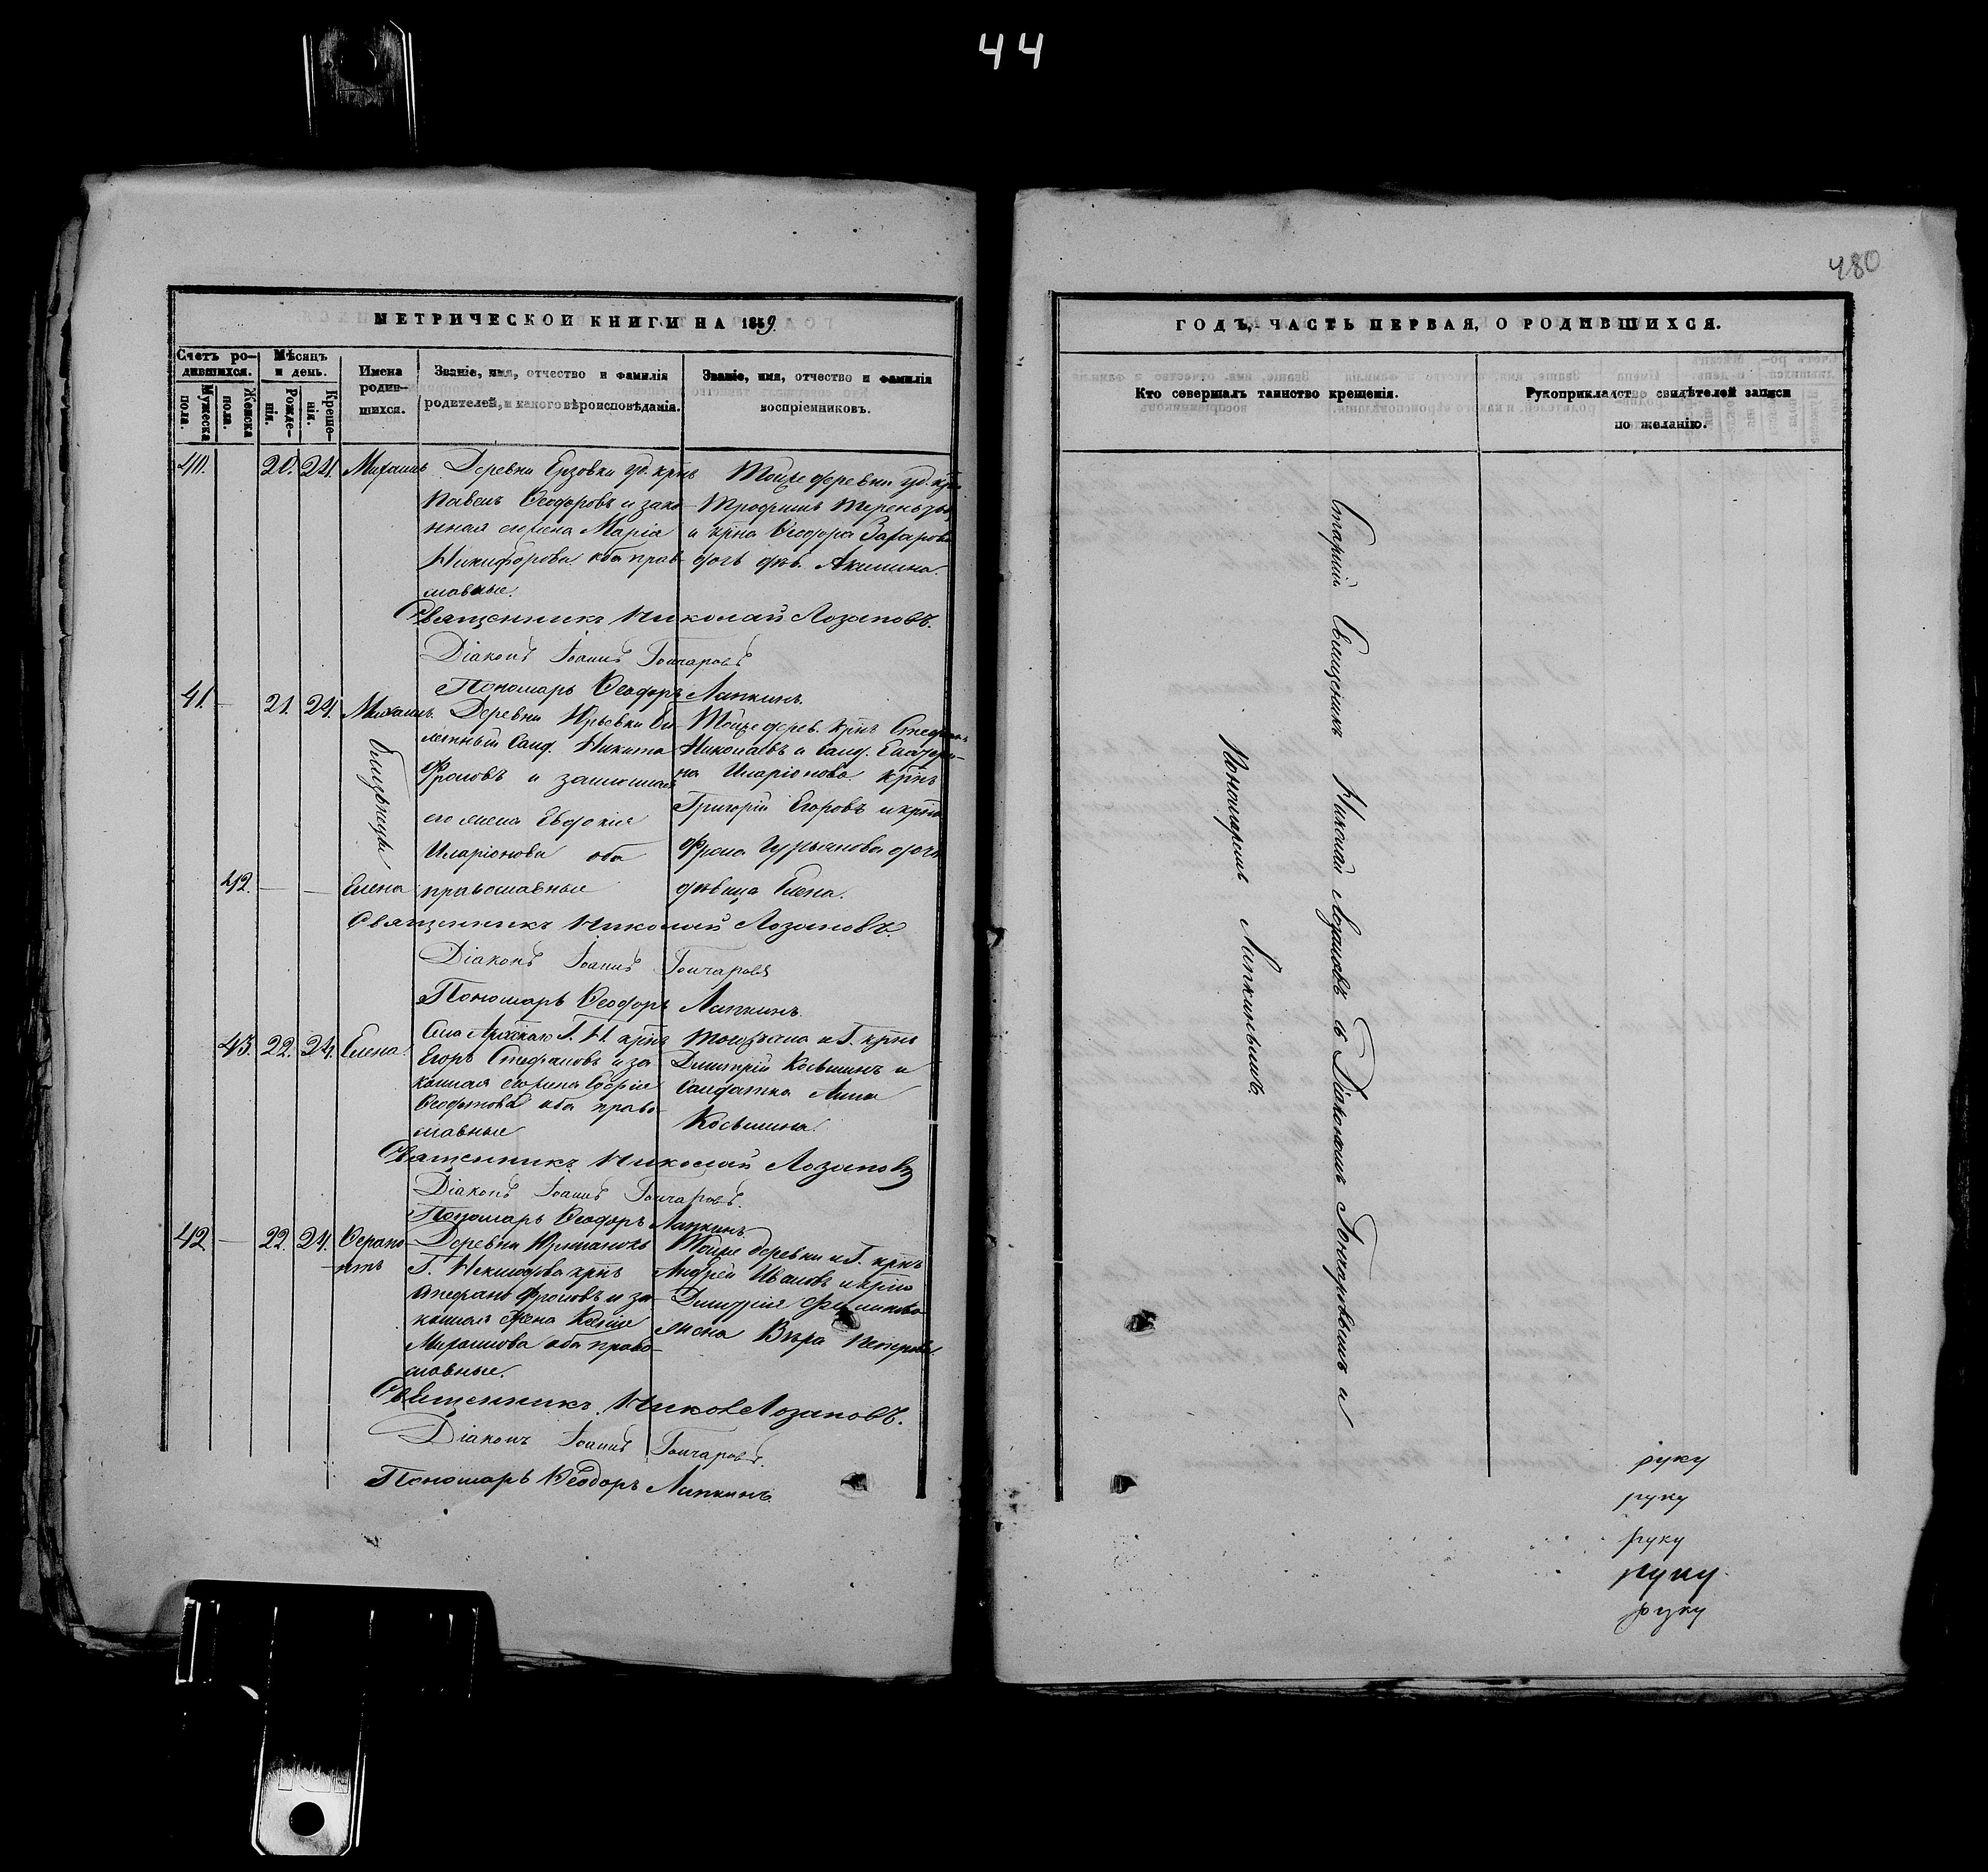 44
480
МЕТРИЧЕСКОЙ КНИГИ НА 1859.
Счетъ ро-
дившихся.
Мужеска
пола.
Женска
пола.
Мѣсяцъ
и день.
Рожде-
нія.
Креще-
нія.
Имена
родив-
шихся.
Званіе, имя, отчество и фамилія
родителей, и какого вѣроисповѣданія.
Званіе, имя, отчество и фамилія
воспріемниковъ.
40. 20. 24. Михаилъ
Деревни Ерзовки уд. крнъ
Павелъ Ѳеодоровъ и зако-
нная жена Марія
Никифорова оба прав-
славные.
Тойже деревни уд. крнъ
Трофимъ Терентьевъ
и крна Ѳеодора Захарова
дочь дѣв. Акилина.
Священникъ Николай Лозановъ.
Діаконъ Іоаннъ Гончаровъ
Пономарь Ѳеодоръ Лапкинъ.
41. 21. 24. Михаилъ.
близнецы
42. Елена
Деревни Юрьевки би-
летный Солд. Никита
Фроловъ и законная
его жена Евдокія
Иларіонова оба
православные
Тойже дерев. крнъ Стефанъ
Николаевъ и солд. Екатери-
на Иларіонова крнъ
Григорій Егоровъ и крна
Фрола Гурьянова дочь
дѣвица Елена.
Священникъ Николай Лозановъ.
Діаконъ Іоаннъ Гончаровъ
Пономарь Ѳеодоръ Лапкинъ
43. 22. 24. Елена.
Села крнъ
Егоръ Стефановъ и за-
конная жена Софія
оба право-
славные
Тогожъ села и Г. крнъ
Дмитрій Косьминъ и
Солдатка Анна
Косьмина.
Священникъ Николай Лозановъ
Діаконъ Іоаннъ Гончаровъ.
Пономарь Ѳеодоръ Лапкинъ
42 22. 24. Ѳерапо-
нтъ
Деревни
Г. крнъ
Стефанъ Фроловъ и за-
конная жена Ксенія
Михаилова оба право-
славные.
Тойже деревни и Г. крнъ
Андрей Ивановъ и крна
Дмитрія
жена Вѣра Петрова.
Священникъ Никол Лозановъ.
Діаконъ Іоаннъ Гончаровъ.
Пономарь Ѳеодоръ Лапкинъ
ГОДЪ, ЧАСТЬ ПЕРВАЯ, О РОДИВШИХСЯ.
Кто совершалъ таинство крещенія.
Рукоприкладство свидѣтелей записи
по желанію.
Старшій Священникъ Николай Лозановъ съ Діакономъ Гончаровымъ и
Пономаремъ Лапкинымъ.
руку
руку
руку
руку.
руку